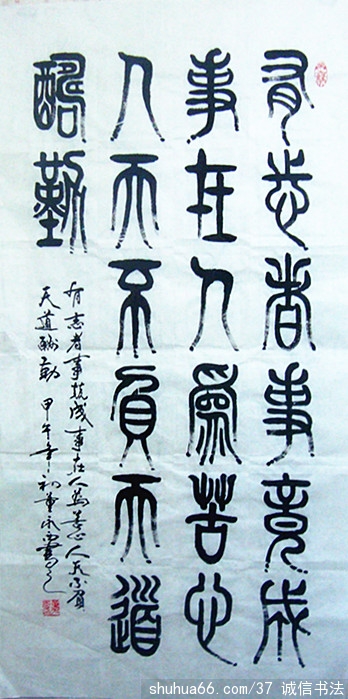 有志者事竟成
事在人為苦心
人天不負天道
酬勤
有志者事竟成事在人為苦心人天不負
天道酬勤 甲午年初 書之
shuhua66.com/37 诚信书法